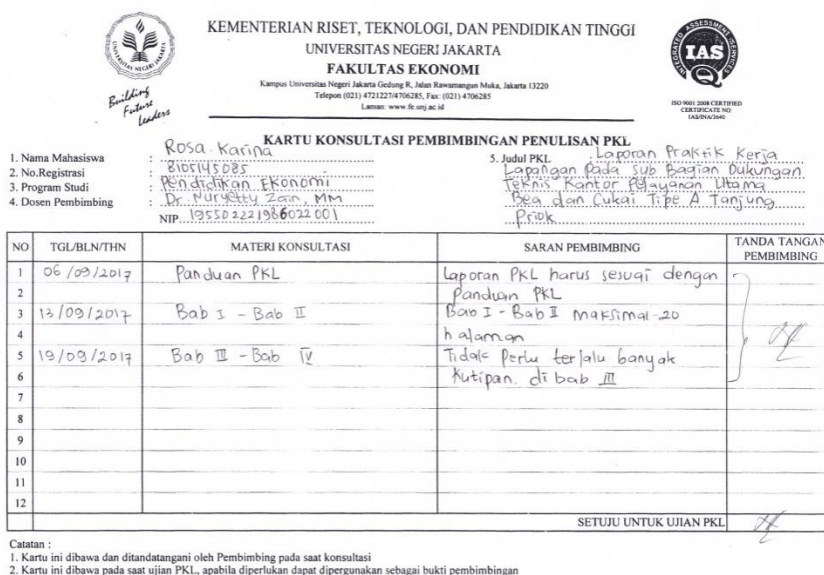 KEMENTERIAN RISET, TEKNOLOGI, DAN PENDIDIKAN TINGGI
UNIVERSITAS NEGERI JAKARTA
FAKULTAS EKONOMI
Kampus Universitas Negeri Jakarta Gedung R, Jalan Rawamangun Muka, Jakarta 13220
Telepon (021) 4721227/4706285, Fax: (021) 4706285
Laman: www.fe.unj.ac.id
Building
Future
Leaders
INTEGRATED ASSESSMENT SERVICES
IAS
ISO 9001:2008 CERTIFIED
CERTIFICATE NO:
IAS/INA/3640
KARTU KONSULTASI PEMBIMBINGAN PENULISAN PKL
1. Nama Mahasiswa : Rosa Karina
2. No.Registrasi : 8105145085
3. Program Studi : Pendidikan Ekonomi
4. Dosen Pembimbing : Dr. Nuryetty Zain, MM
NIP. 195502221986022001
5. Judul PKL : Laporan Praktik Kerja
Lapangan Pada Sub Bagian Dukungan
Teknis Kantor Pelayanan Utama
Bea dan Cukai Tipe A Tanjung
Priok
NO TGL/BLN/THN MATERI KONSULTASI SARAN PEMBIMBING TANDA TANGAN PEMBIMBING
1 06/09/2017 Panduan PKL Laporan PKL harus sesuai dengan
2 Panduan PKL
3 13/09/2017 Bab I - Bab II Bab I - Bab II maksimal 20
4 halaman
5 19/09/2017 Bab III - Bab IV Tidak Perlu terlalu banyak
6 Kutipan. di bab III
7
8
9
10
11
12
SETUJU UNTUK UJIAN PKL
Catatan :
1. Kartu ini dibawa dan ditandatangani oleh Pembimbing pada saat konsultasi
2. Kartu ini dibawa pada saat ujian PKL, apabila diperlukan dapat dipergunakan sebagai bukti pembimbingan